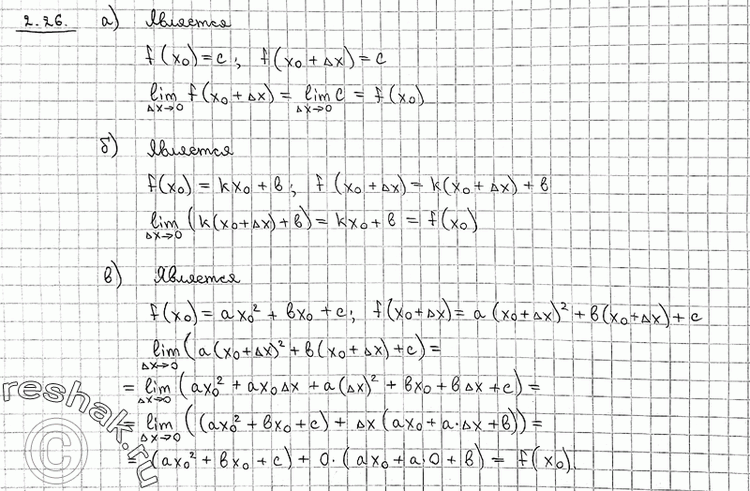 2.26. а) Является
f(x₀) = c; f(x₀ + Δx) = c
lim Δx→0 f(x₀ + Δx) = lim Δx→0 c = f(x₀)
б) Является
f(x₀) = kx₀ + в; f(x₀ + Δx) = k(x₀ + Δx) + в
lim Δx→0 (k(x₀+Δx) + в) = kx₀ + в = f(x₀)
в) Является
f(x₀) = ax₀² + вx₀ + c; f(x₀+Δx) = a(x₀+Δx)² + в(x₀+Δx) + c
lim Δx→0 (a(x₀+Δx)² + в(x₀+Δx) + c) =
= lim Δx→0 (ax₀² + ax₀Δx + a(Δx)² + вx₀ + вΔx + c) =
= lim Δx→0 ((ax₀² + вx₀ + c) + Δx(ax₀ + a·Δx + в)) =
= (ax₀² + вx₀ + c) + 0·(ax₀ + a·0 + в) = f(x₀).
reshak.ru
©